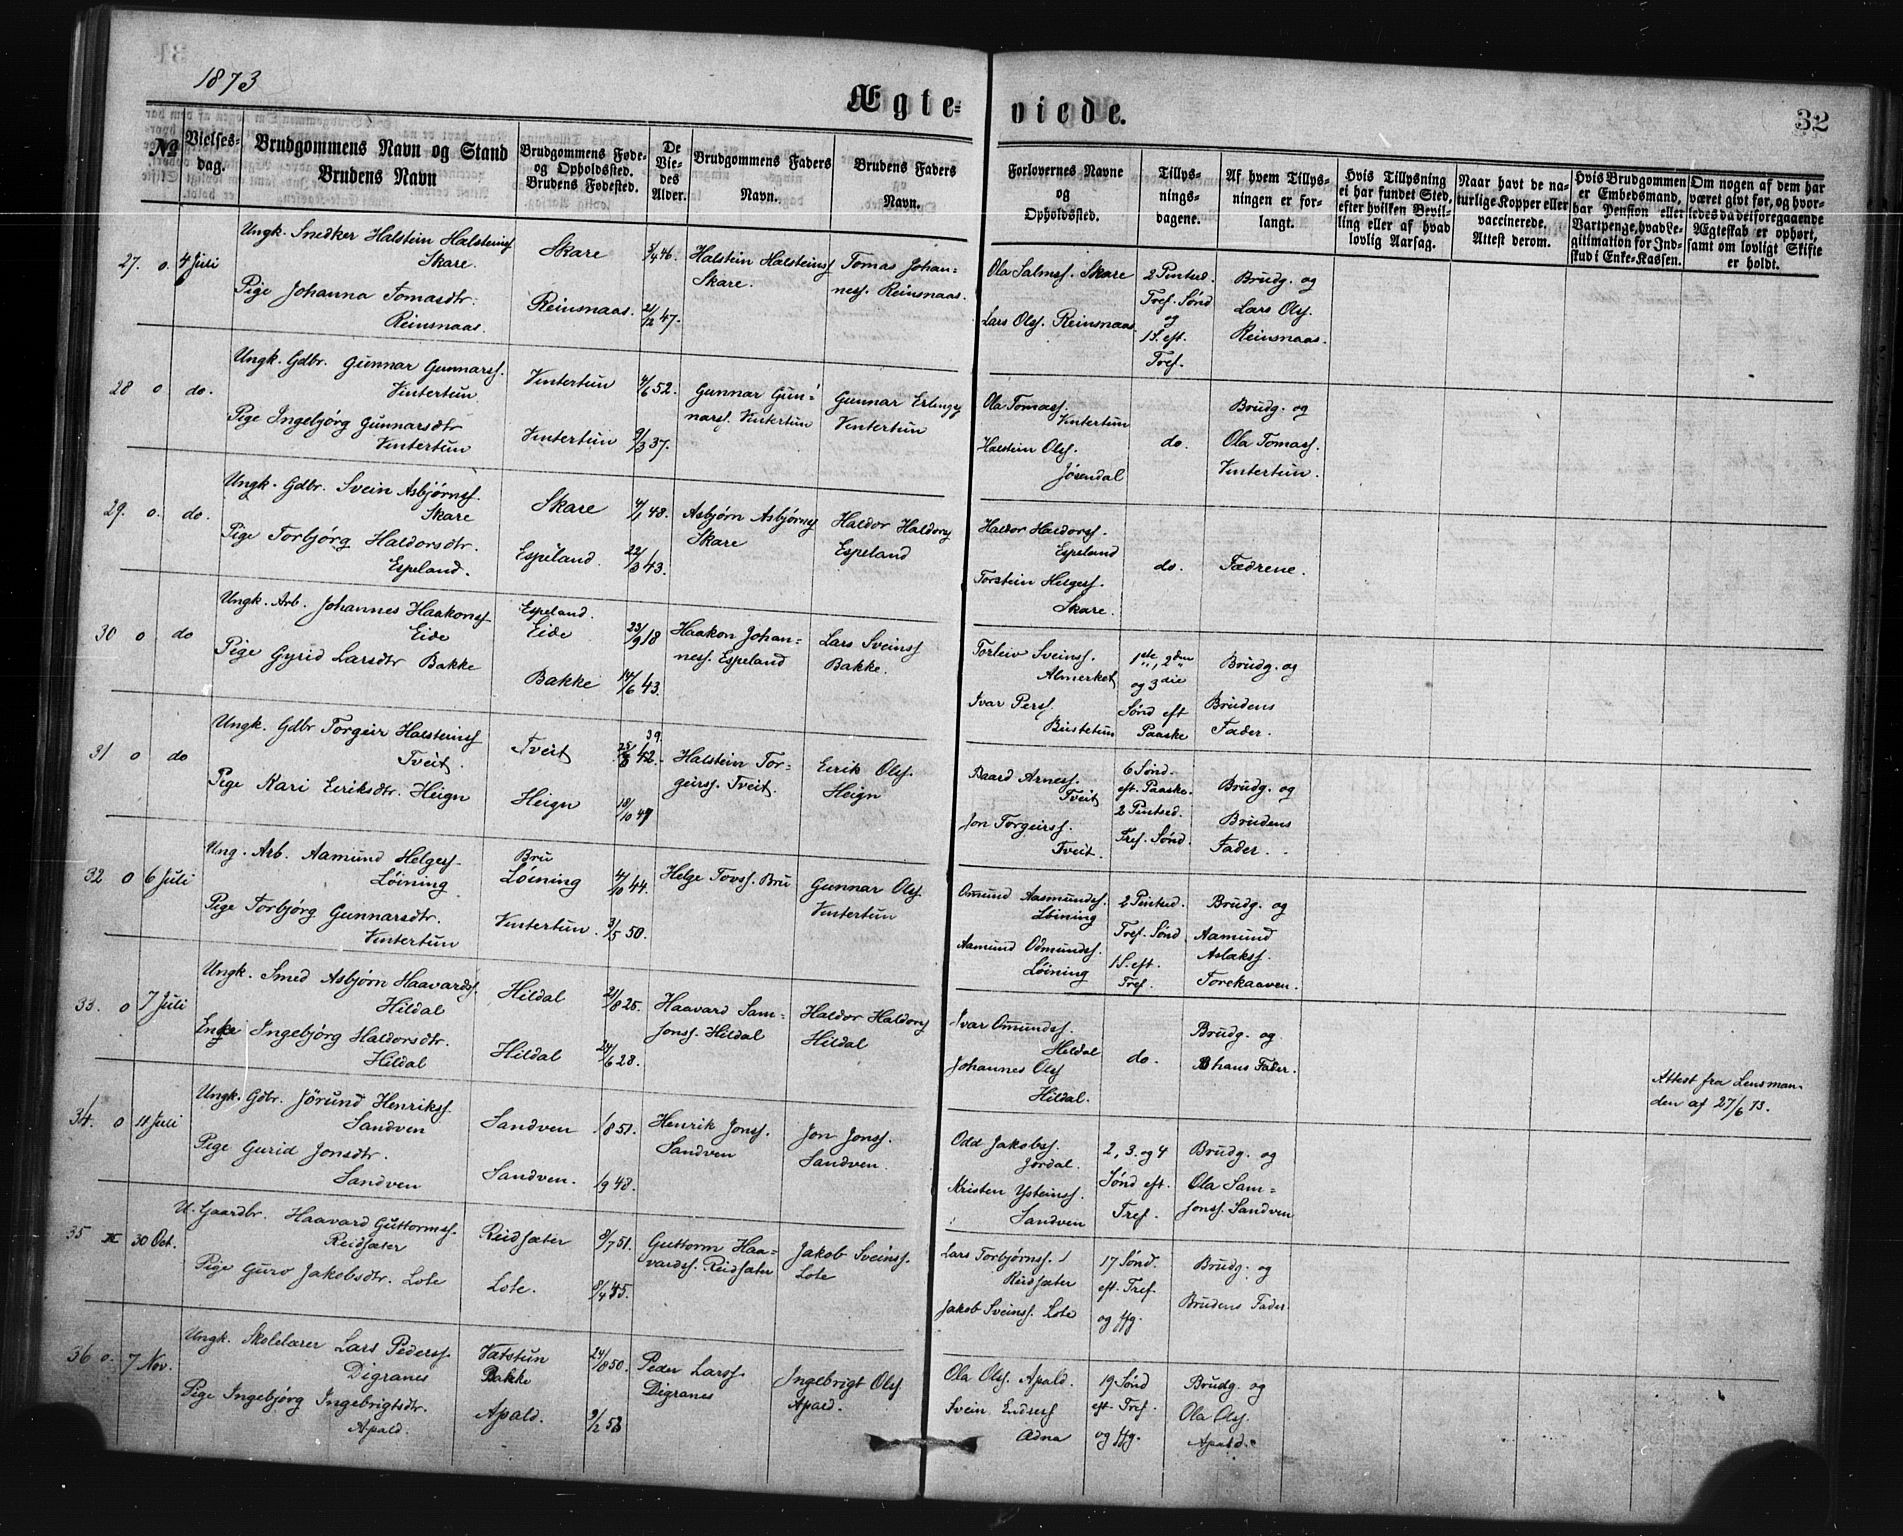 1873
Ægteviede.
32
No
Vielses-
dag.
Brudgommens Navn og Stand
Brudens Navn
Brudgommens Føde-
og Opholdssted.
Brudens Fødested.
De
Vie-
des
Alder.
Brudgommens Faders
Navn.
Brudens Faders
Navn.
Forlovernes Navne
og
Opholdssted.
Tillys-
nings-
dagene.
Af hvem Tillys-
ningen er for-
langt.
Hvis Tillysning
ei har fundet Sted,
efter hvilken Bevil-
ling eller af hvad
lovlig Aarsag.
Naar havt de na-
turlige Kopper eller
vaccinerede.
Attest derom.
Hvis Brudgommen
er Embedsmand,
har Pension eller
Vartpenge, hvad Le-
gitimation for Ind-
skud i Enke-Kassen.
Om nogen af dem har
været givt før, og hvor-
ledes da det foregaaende
Ægteskab er ophørt,
samt om lovligt Skifte
er holdt.
27. o. 4 Juli
Ungk. Snedker Halstein Halsteinss
Skare.
Pige Johanna Tomasdtr.
Reinsnaas.
Skare
Reinsnaas.
8/4 46.
21/12 47.
Halstein Halsteinss
Skare.
Tomas Johan-
ness. Reinsnaas.
Ola Salmss. Skare
Lars Olss. Reinsnaas
2 Pintsed.
Tref. Sønd
og
1 S. eft.
Tref.
Brudg. og
Lars Ols.
Reinsnaas.
28 o do.
Ungk. Gdbr. Gunnar Gunnarss.
Vintertun
Pige Ingebjørg Gunnarsdtr
Vintertun
Vintertun
Vintertun
4/6 52.
9/3 37.
Gunnar Gun-
narss. Vintertun
Gunnar Erlings
Vintertun
Ola Tomass.
Vintertun
Halstein Olss.
Jøsendal
do.
Brudg. og
Ola Tomass.
Vintertun.
29. o. do.
Ungk. Gdbr. Svein Asbjørnss.
Skare
Pige Torbjørg Haldorsdtr.
Espeland.
Skare
Espeland.
4/1 48.
22/3 43.
Asbjørn Asbjørns
Skare
Haldor Haldors
Espeland
Haldor Haldorss.
Espeland
Torstein Helgess.
Skare.
do.
Fædrene.
30 o do
Ungk. Arb. Johannes Haakonss
Eide
Pige Gyrid Larsdtr Bakke
Espeland.
Eide
Bakke
23/9 18
14/6 43.
Haakon Johan-
ness. Espeland
Lars Sveinss
Bakke.
Torleiv Sveinss.
Almerket
Ivar Perss.
Bustetun
1ste, 2den
og 3die
Sønd eft
Paaske
Brudg. og
Brudens
Fader.
31 o do
Ungk. Gdbr Torgeir Halsteinss
Tveit.
Pige Kari Eiriksdtr. Heign
Tveit
Heign
39.
25/8 42.
18/10 49
Halstein Tor-
geirss. Tveit.
Eirik Olss.
Heign
Baard Arness.
Tveit
Jon Torgeirss.
Tveit.
6 Sønd.
eft. Paaske.
2 Pintsed.
Tref. Sønd.
Brudg. og
Brudens
Fader.
32 o 6 Juli
Ung. Arb. Aamund Helgess.
Løining
Pige Torbjørg Gunnarsdtr.
Vintertun
Bru
Løining
Vintertun.
4/10 44.
3/5 50.
Helge Tovss. Bru
Gunnar Ols
Vintertun
Omund Aasmundss.
Løining
Aamund Odmundss.
Løining
2 Pintsed.
Tref. Sønd.
1 S. eft.
Tref.
Brudg. og
Aamund
Aslakss.
Torekaaven.
33. o 7 Juli
Ungk. Smed Asbjørn Haavardss.
Hildal
Enke Ingebjørg Haldorsdtr.
Hildal
Hildal
Hildal
21/8 25.
24/6 28.
Haavard Sam-
sons. Hildal
Haldor Haldors
Hildal
Ivar Omundss.
Hildal
Johannes Ols
Hildal.
do.
Brudg. og
hans Fader.
Attest fra Lensman-
den af 27/6 73.
34. o 11 Juli
Ungk. Gdbr. Jørund Henrikss.
Sandven
Pige Gurid Jonsdtr.
Sandven
Sandven
Sandven.
1/8 51.
1/9 48.
Henrik Jonss.
Sandven
Jon Jonss.
Sandven.
Odd Jakobss.
Jordal.
Kristen Ysteinss.
Sandven
2, 3. og 4
Sønd eft.
Tref.
Brudg. og
Ola Sam-
sons. Sandven
35 x 30 Oct.
U. Gaardbr. Haavard Guttormss.
Reidsæter
Pige Guro Jakobsdtr. Lote
Reidsæter
Lote.
9/7 51.
8/4 55.
Guttorm Haa-
vardss. Reidsæter
Jakob Sveinss.
Lote
Lars Torbjørnss.
Reidsæter
Jakob Sveinss. Lote
17 Sønd.
eft. Tref.
og ffg.
Brudg. og
Brudens Fader
36 o. 7 Nov.
Ungk. Skolelærer Lars Pederss.
Digranes
Pige Ingebjørg Ingebrigtsdtr.
Apald.
Vatstun
Bakke
Apald.
24/8 50.
9/2 53
Peder Larss.
Digranes
Ingebrigt Ols
Apald.
Ola Olss. Apald.
Svein Endress
Ædna
19 Sønd
eft. Tref.
og ffg.
Brudg. og
Ola Olss.
Apald.